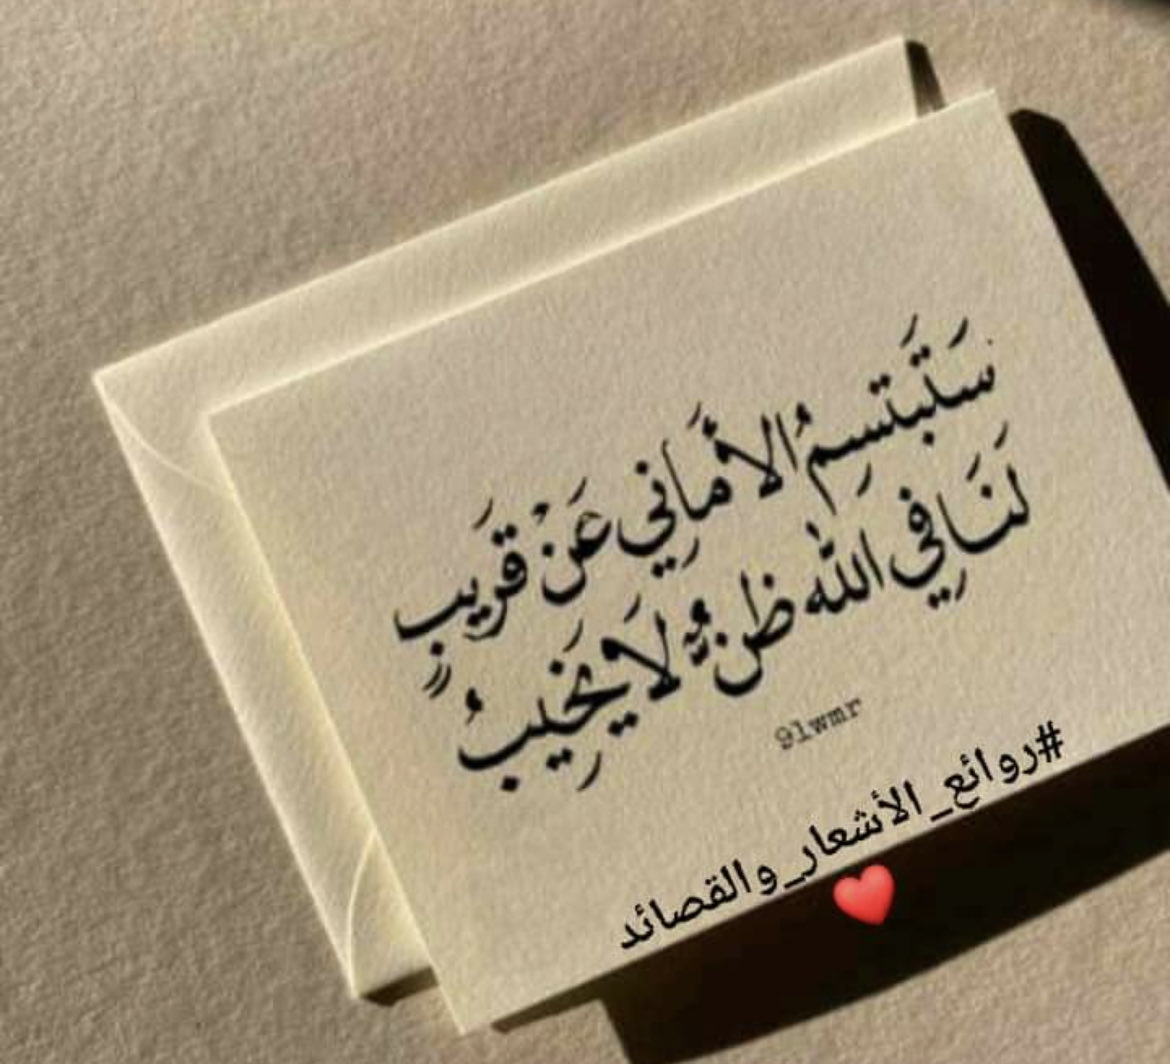 سَتَبتَسِمُ الأَماَنِي عَنْ قَرَيبٍ
لَنَا فِي اللهِ ظَنٌّ لاَ يَخَيِبُ
91wmr
#روائع_الأشعار_والقصائد
❤️